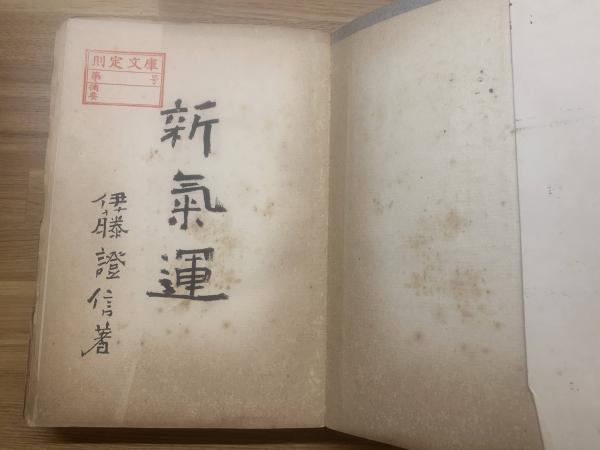 則定文庫
第 号
備要
新氣運
伊藤證信著